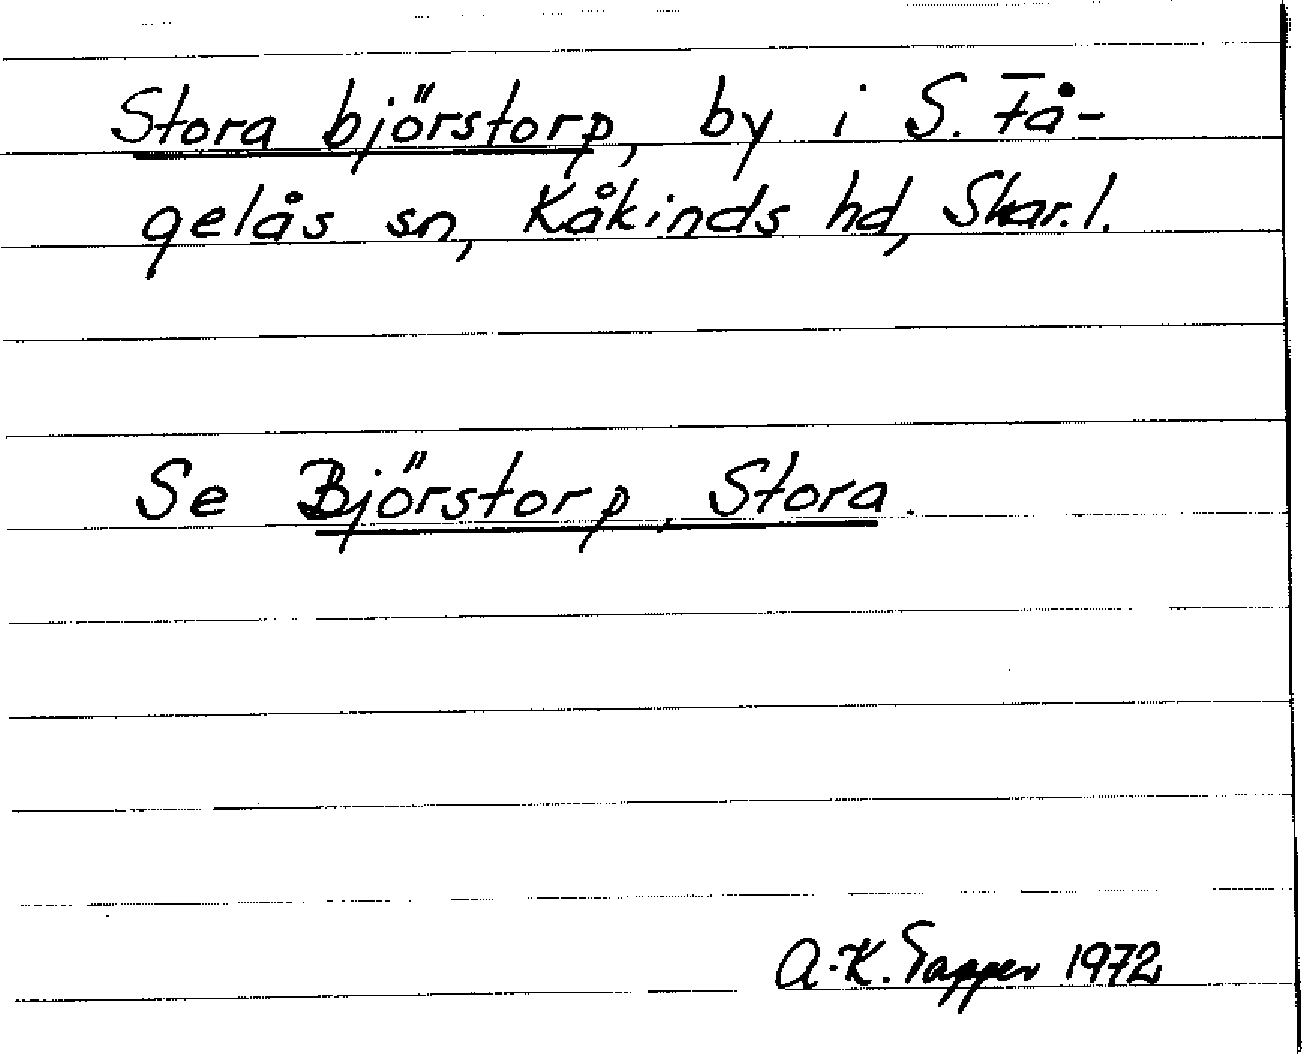 Stora björstorp, by i S. Få-
gelås sn, Kåkinds hd, Skar. l.
Se Björstorp, Stora.
A.-K. Tapper 1972